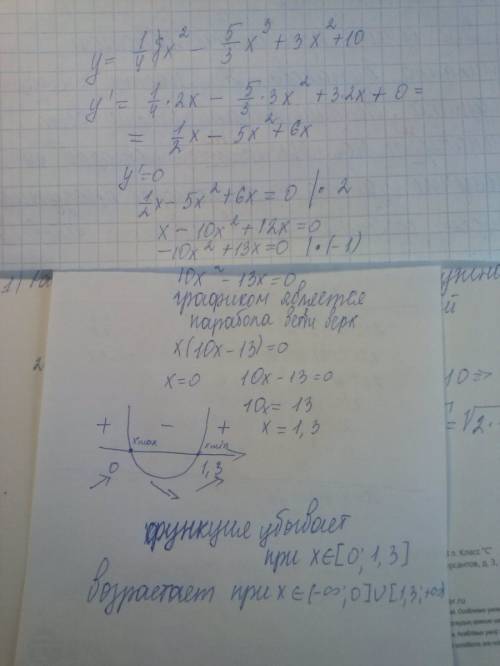 y = 1/4 x² - 5/3 x³ + 3x² + 10
y' = 1/4 · 2x - 5/3 · 3x² + 3·2x + 0 =
= 1/2 x - 5x² + 6x
y'=0
1/2 x - 5x² + 6x = 0 | · 2
x - 10x² + 12x = 0
-10x² + 13x = 0 | · (-1)
10x² - 13x = 0
графиком является
парабола ветви верх
x(10x - 13) = 0
x = 0 10x - 13 = 0
10x = 13
x = 1,3
+ - +
xmax xmin
0 1,3
функция убывает
при x∈[0; 1,3]
возрастает при x∈(-∞; 0]∪[1,3; +∞)
1)
2
10 =>
л. Класс "С"